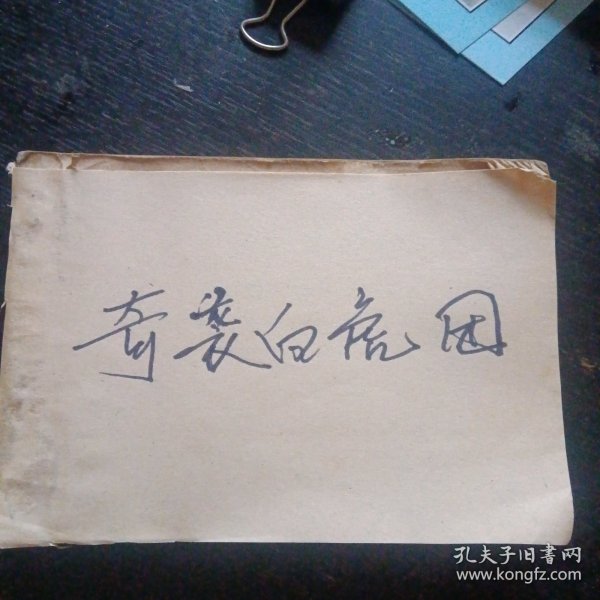 奇袭白虎团
孔夫子旧書网
www.kongfz.com